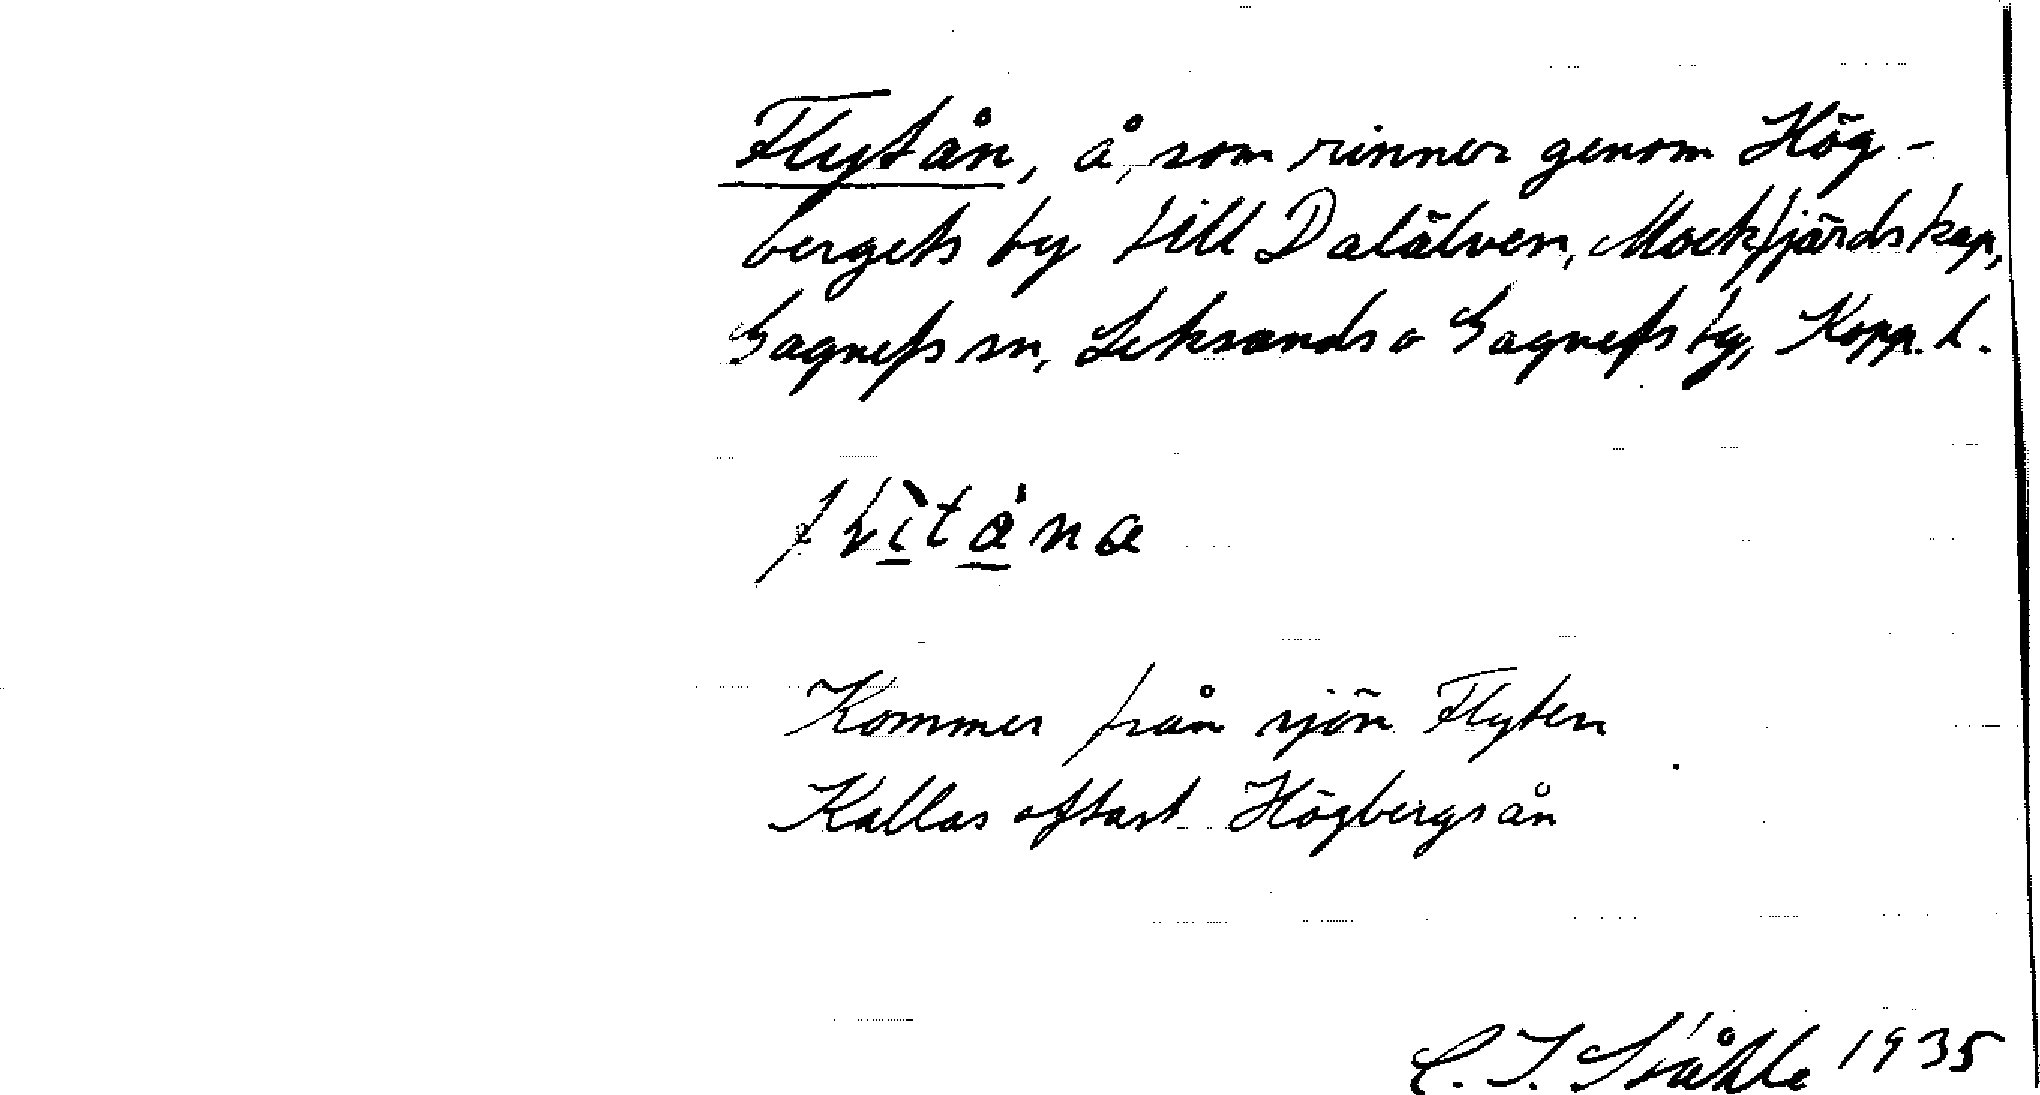 Flytån, å, som rinner genom Hög-
bergets by till Dalälven, Mockfjärds kap,
Gagnefs sn, Leksands o Gagnefs tg, Kopp. l.
Kommer från sjön Flyten
Kallas oftast Högbergsån
C. I. Ståhle 1935